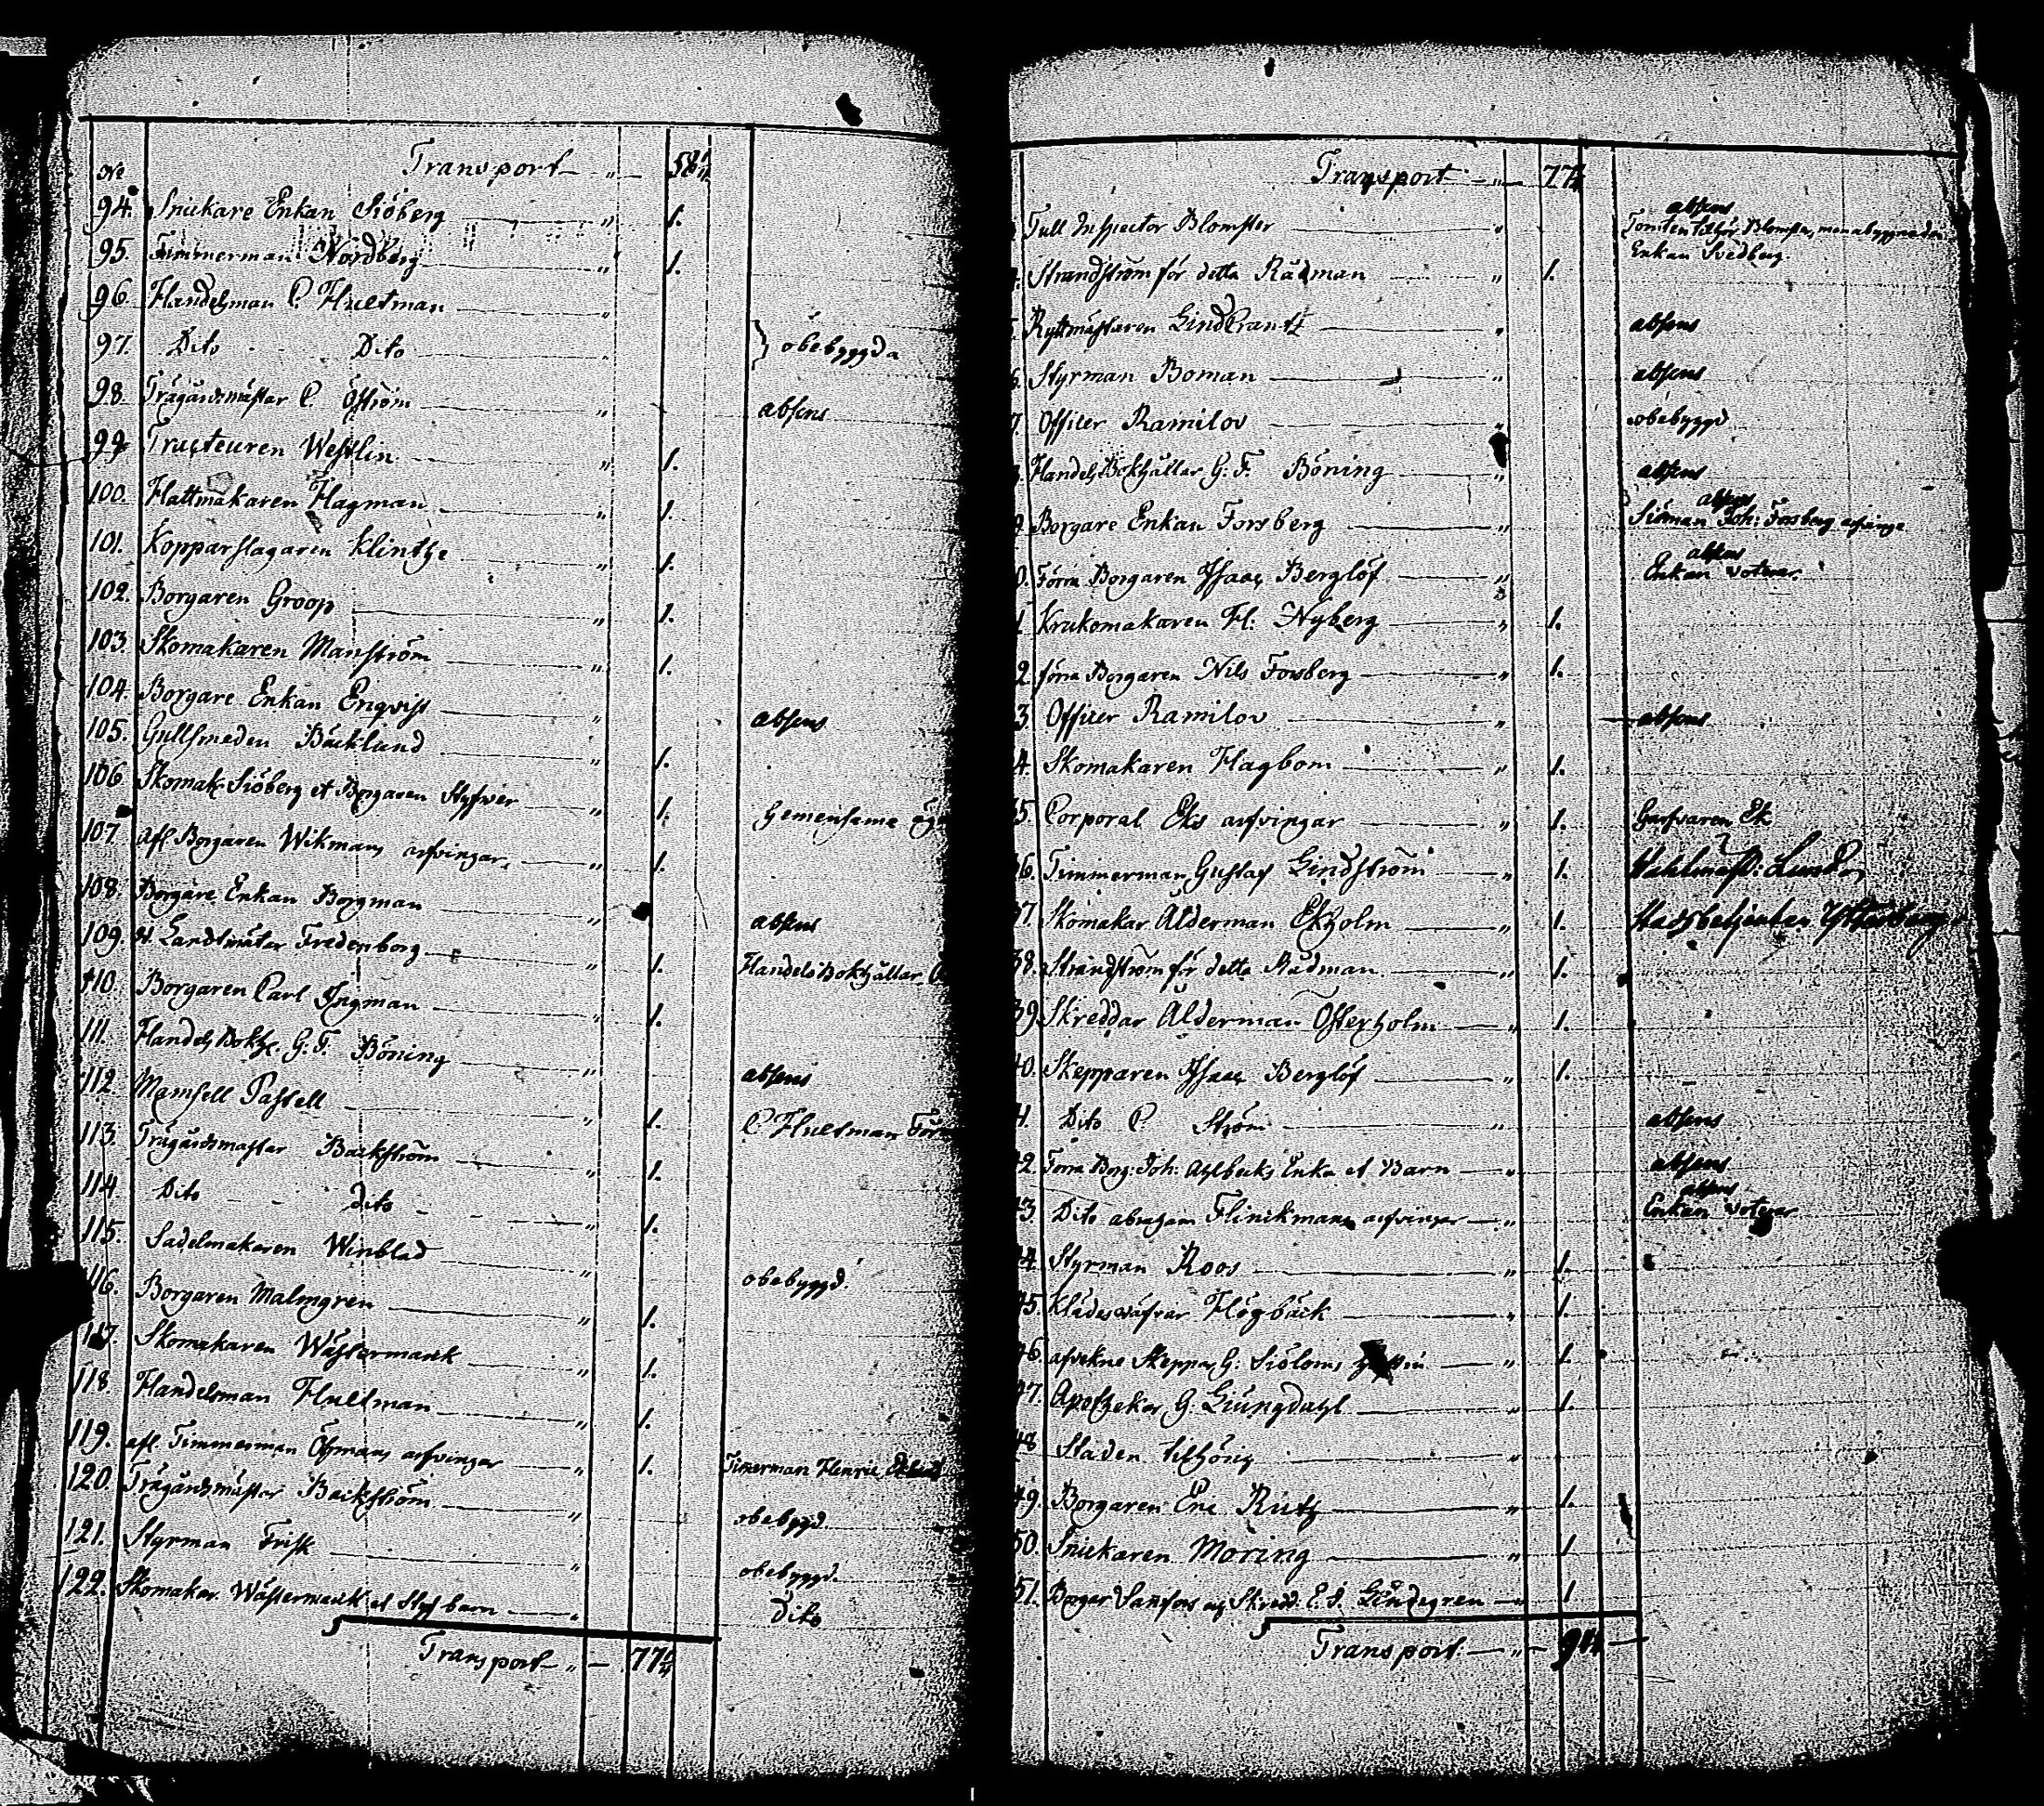 No Transport 58 1/4
94. Snickare Enkan Siöberg " 1.
95. Timmerman Nordberg " 1.
96. Handelsman C. Hultman "
97. Dito Dito } obebyggda
98. Trägårdsmästar C. Öström " absens
99. Tracteuren Westlin " 1.
100. Hattmakaren Hagman " 1.
101. Kopparslagaren Klinthe " 1.
102. Borgaren Groop " 1.
103. Skomakaren Manström " 1.
104. Borgare Enkan Enqvist " absens
105. Gullsmeden Bäcklund " 1.
106. Skomak. Siöberg et Borgaren Styfver " 1. Gemensama
107. afl. Borgaren Wikmans arfvingar " 1.
108. Borgare Enkan Borgman " absens
109. Landtmätar Fredenborg " 1. Handels Bokhållar
110. Borgaren Carl Ingman " 1.
111. Handels Bokh. G. F. Böning " absens
112. Mamsell Pastell " 1. C. Hultman
113. Trägårdsmästar Backström " 1.
114. Dito dito " 1.
115. Sadelmakaren Winblad " obebyggd.
116. Borgaren Malmgren " 1.
117. Skomakaren Wästermark " 1.
118. Handelsman Hultman " 1.
119. afl. Timmerman Östmans arfvingar " 1. Timerman Henric
120. Trägårdsmästar Backström " obebygd.
121. Styrman Frisk " obebyggd.
122. Skomakar Wästermark et Styfbarn " Dito
Transport " 77 1/4
Transport " 77 1/4
Tull Inspector Blomster " absens
Tomten tillhör Blomster, men
Enkan Svedberg.
Strandström för detta Rådman " 1.
Ryttmästaren Lindcrantz " absens
Styrman Boman " absens
7. Officer Ramilov " obebyggd
Handels Bokhållar G. F. Böning " absens
9. Borgare Enkan Forsberg " absens
Siöman Joh: Forsberg arfvinge
0. Förra Borgaren Isaac Berglöf " absens
Enkan voterar.
1 Krukomakaren H: Nyberg " 1.
2. förra Borgaren Nils Forsberg " 1.
3 Officer Ramilov " absens
4. Skomakaren Hagbom " 1.
35. Corporal Eks arfvingar " 1. Garfvaren Ek
36. Timmerman Gustaf Lindström " 1.
37. Skomakar Ålderman Ekholm " 1.
38. Strandström för detta Rådman " 1.
39 Skreddar Ålderman Österholm " 1.
40. Skepparen Isaac Berglöf " 1.
41. Dito C Ström " absens
42. Förra Borg: Joh: Ahlbecks Enka et Barn " absens
43. Dito Abraham Flinckmans arfvingar " absens
Enkan voterar
44. Styrman Roos " 1.
45. Klädesväfvar Högback " 1.
46. Skeppar G: Siöloms " 1.
47. Apothekar G. Liungdahl " 1.
48 Staden tilhörig "
49. Borgaren Eric Ruth " 1.
50. Snickaren Moring " 1
51. Borgar Sanfors Skredd. E. J. Lindegren " 1
Transport "